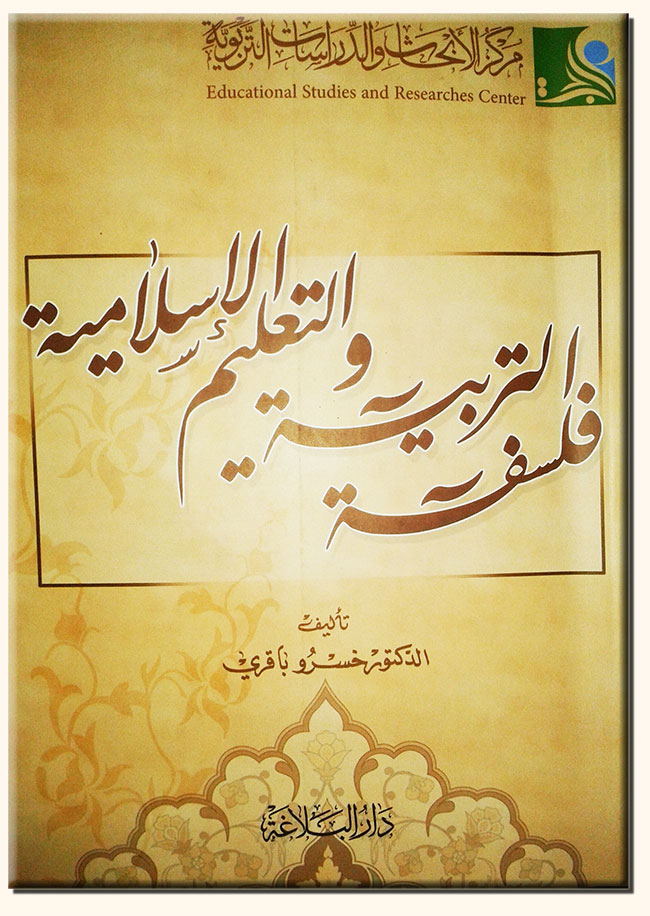 مركز الأبحاث والدراسات التربوية
Educational Studies and Researches Center
فلسفة التربية والتعليم الإسلامية
تأليف
الدكتور خسرو باقري
دار البلاغة